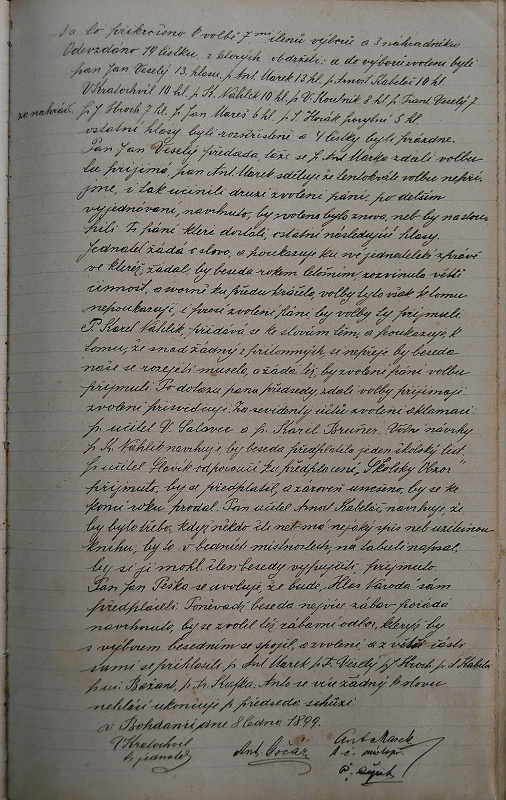 a to přikročeno k volbě 7mi členů výboru a 3 náhradníků
Odevzdáno 19 lístků, z kterých obdrželi: a do výboru zvoleni byli
pan Jan Veselý 13 hlasů, p Ant. Marek 13 hl. p. Arnošt Kabeláč 10 hl.
V Kratochvil 10 hl, p K. Náhlík 10 hl, p V. Koutník 8 hl p Frant. Veselý 7
za náhrad. p. J Hroch 7 hl. p Jan Mareš 6 hl p J Horák 5 hl.
ostatní hlasy byli rozstříštěné a 4 lístky byli prázdné.
Pan Jan Veselý předseda, táže se p. Ant. Marka zdali volbu
tu přijímá, pan Ant. Marek sděluje že tentokráte volbu nepři-
jme, i tak učinili druzí zvolení páni, po delším
vyjednávání, navrhnuto, by voleno bylo znova, neb by nastou-
pili ti páni kteří dostali, ostatní následující hlasy.
Jednatel žádá o slovo, a poukazuje ku své jednatelské zprávě
ve kteréž, žádal by beseda rokem letošním, rozvinula větší
činnost, a svorně ku předu kráčela, volby by to však k tomu
nepoukazují, i prosí zvolení páni by volby ty přijmuli.
P. Karel Náhlík, přidává se ke slovům těm, a poukazuje, k
tomu, že snad žádný z přítomných, si nepřeje by beseda
naše se rozejeti musela, a žádá též, by zvolení páni volbu
přijmuli. Po dotazu pana předsedy, zdali volby přijímají
zvolení přisvědčují. Za revidenty účtů zvoleni aklamací
p. učitel V. Salvec a p. Karel Bruner. Volné návrhy
p. K. Náhlík navrhuje, by beseda předplatila jeden školský list.
p. učitel Slavík odporoučí ku předplacení „Školský Obzor“
přijmuto, by se předplatil, a zároveň usneseno, by se ke
konci roku prodal. Pan učitel Arnošt Kabeláč, navrhuje, že
by bylo třebo, když někdo čte neb má nějaký spis neb užitečnou
knihu, by to v besedních místnostech, na tabuli napsal,
by si je mohl člen besedy vypůjčiti přijmuto.
Pan Jan Peška se uvoluje, že bude, Hlas Národa sám
předpláceti. Poněvadž beseda nejvíce, zábav pořádá
navrhnuto, by se zvolil též zábavní odbor, kterýž by
s výborem besedním se spojil, a zvoleni, a z větší části
sami se přihlásili, p. Ant Marek p. F. Veselý p J Hroch, p. A Kabeláč
p. uč. Bažant, p. Fr. Kafka. Ant. se více žádný k slovu
nehlásí ukončuje p. předseda schůzi.
v Bohdanči, dne 8 ledna 1899.
V Kratochvil
t. č. jednatel
Ant. Počár
Ant. Marek
t. č. místopř.